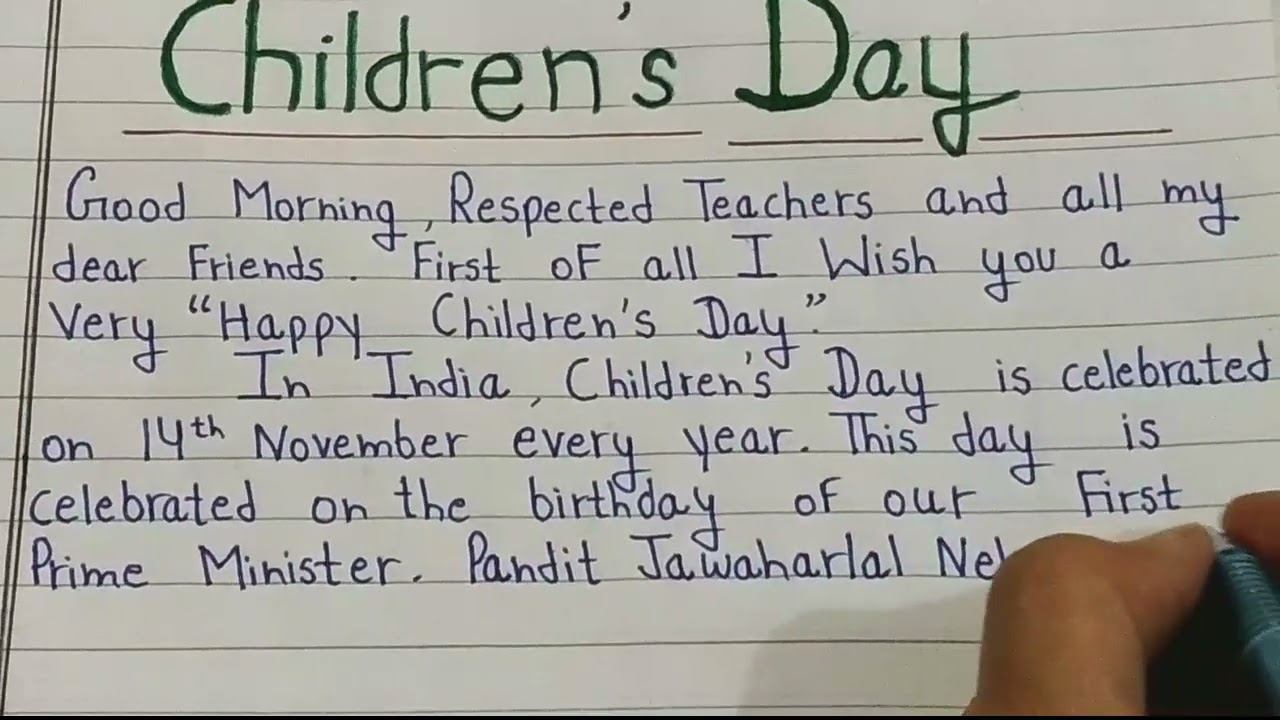 Children's Day
Good Morning, Respected Teachers and all my
dear Friends. First of all I Wish you a
Very “Happy Children's Day”.
In India, Children's Day is celebrated
on 14th November every year. This day is
celebrated on the birthday of our First
Prime Minister. Pandit Jawaharlal